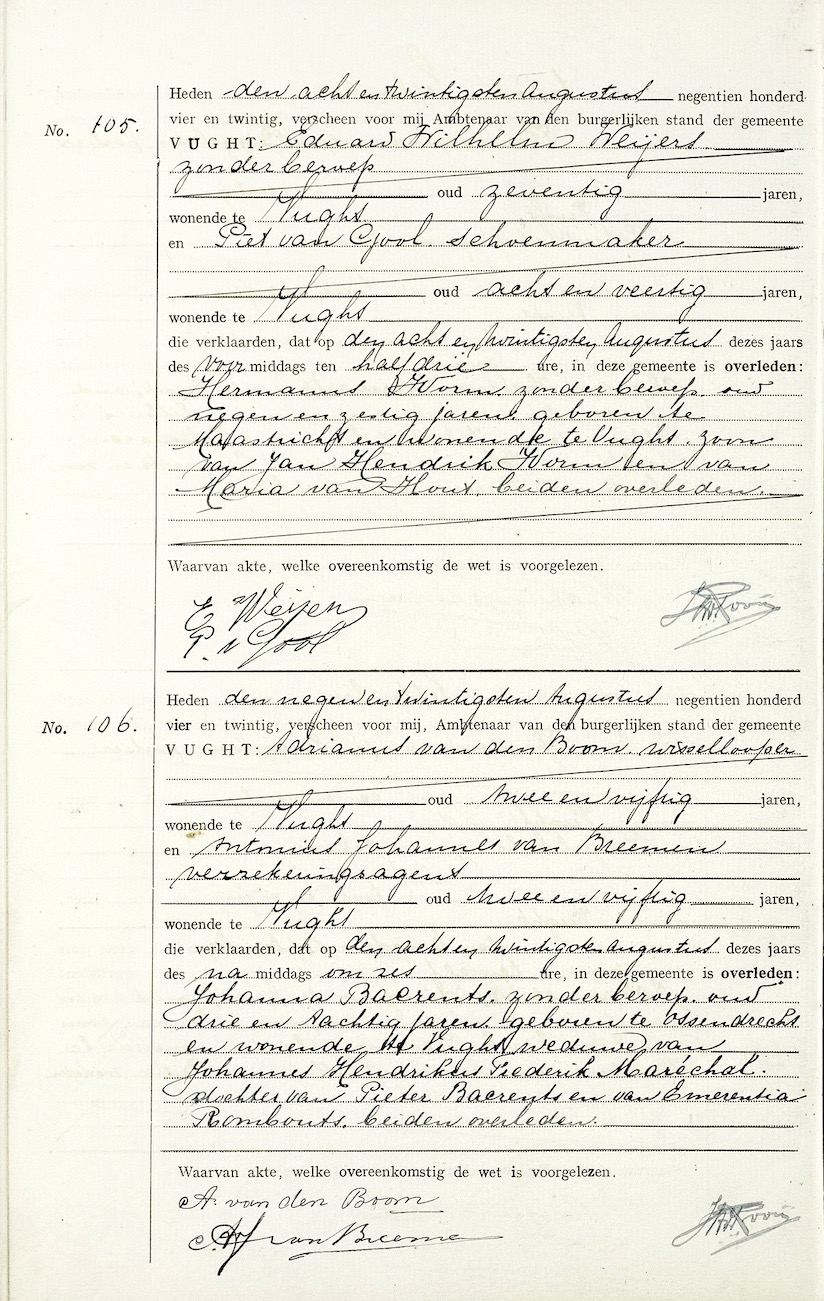 Heden den acht en twintigsten Augustus negentien honderd
No. 105.
vier en twintig, verscheen voor mij Ambtenaar van den burgerlijken stand der gemeente
VUGHT: Eduard Wilhelm Weijers
zonder beroep
oud zeventig jaren,
wonende te Vught
en Piet van Gool. schoenmaker
oud acht en veertig jaren,
wonende te Vught
die verklaarden, dat op den acht en twintigsten Augustus dezes jaars
des voor middags ten half drie ure, in deze gemeente is overleden:
Hermanus Worm. zonder beroep. oud
negen en zestig jaren. geboren te
Maastricht en wonende te Vught. zoon
van Jan Hendrik Worm en van
Maria van Hout, beiden overleden.
Waarvan akte, welke overeenkomstig de wet is voorgelezen.
E Weijers
P. v Gool
Heden den negen en twintigsten Augustus negentien honderd
No. 106.
vier en twintig, verscheen voor mij, Ambtenaar van den burgerlijken stand der gemeente
VUGHT: Adrianus van den Boom. wissellooper
oud twee en vijftig jaren,
wonende te Vught
en Antonius Johannes van Breemen
verzekeringsagent
oud twee en vijftig jaren,
wonende te Vught
die verklaarden, dat op den acht en twintigsten augustus dezes jaars
des na middags om zes ure, in deze gemeente is overleden:
Johanna Baerents. zonder beroep. oud
drie en tachtig jaren. geboren te Ossendrecht
en wonende te Vught weduwe van
Johannes Hendrikus Frederik Maréchal.
dochter van Pieter Baerents en van Emerentia
Rombouts. beiden overleden.
Waarvan akte, welke overeenkomstig de wet is voorgelezen.
A. van den Boom
AJ van Breemen